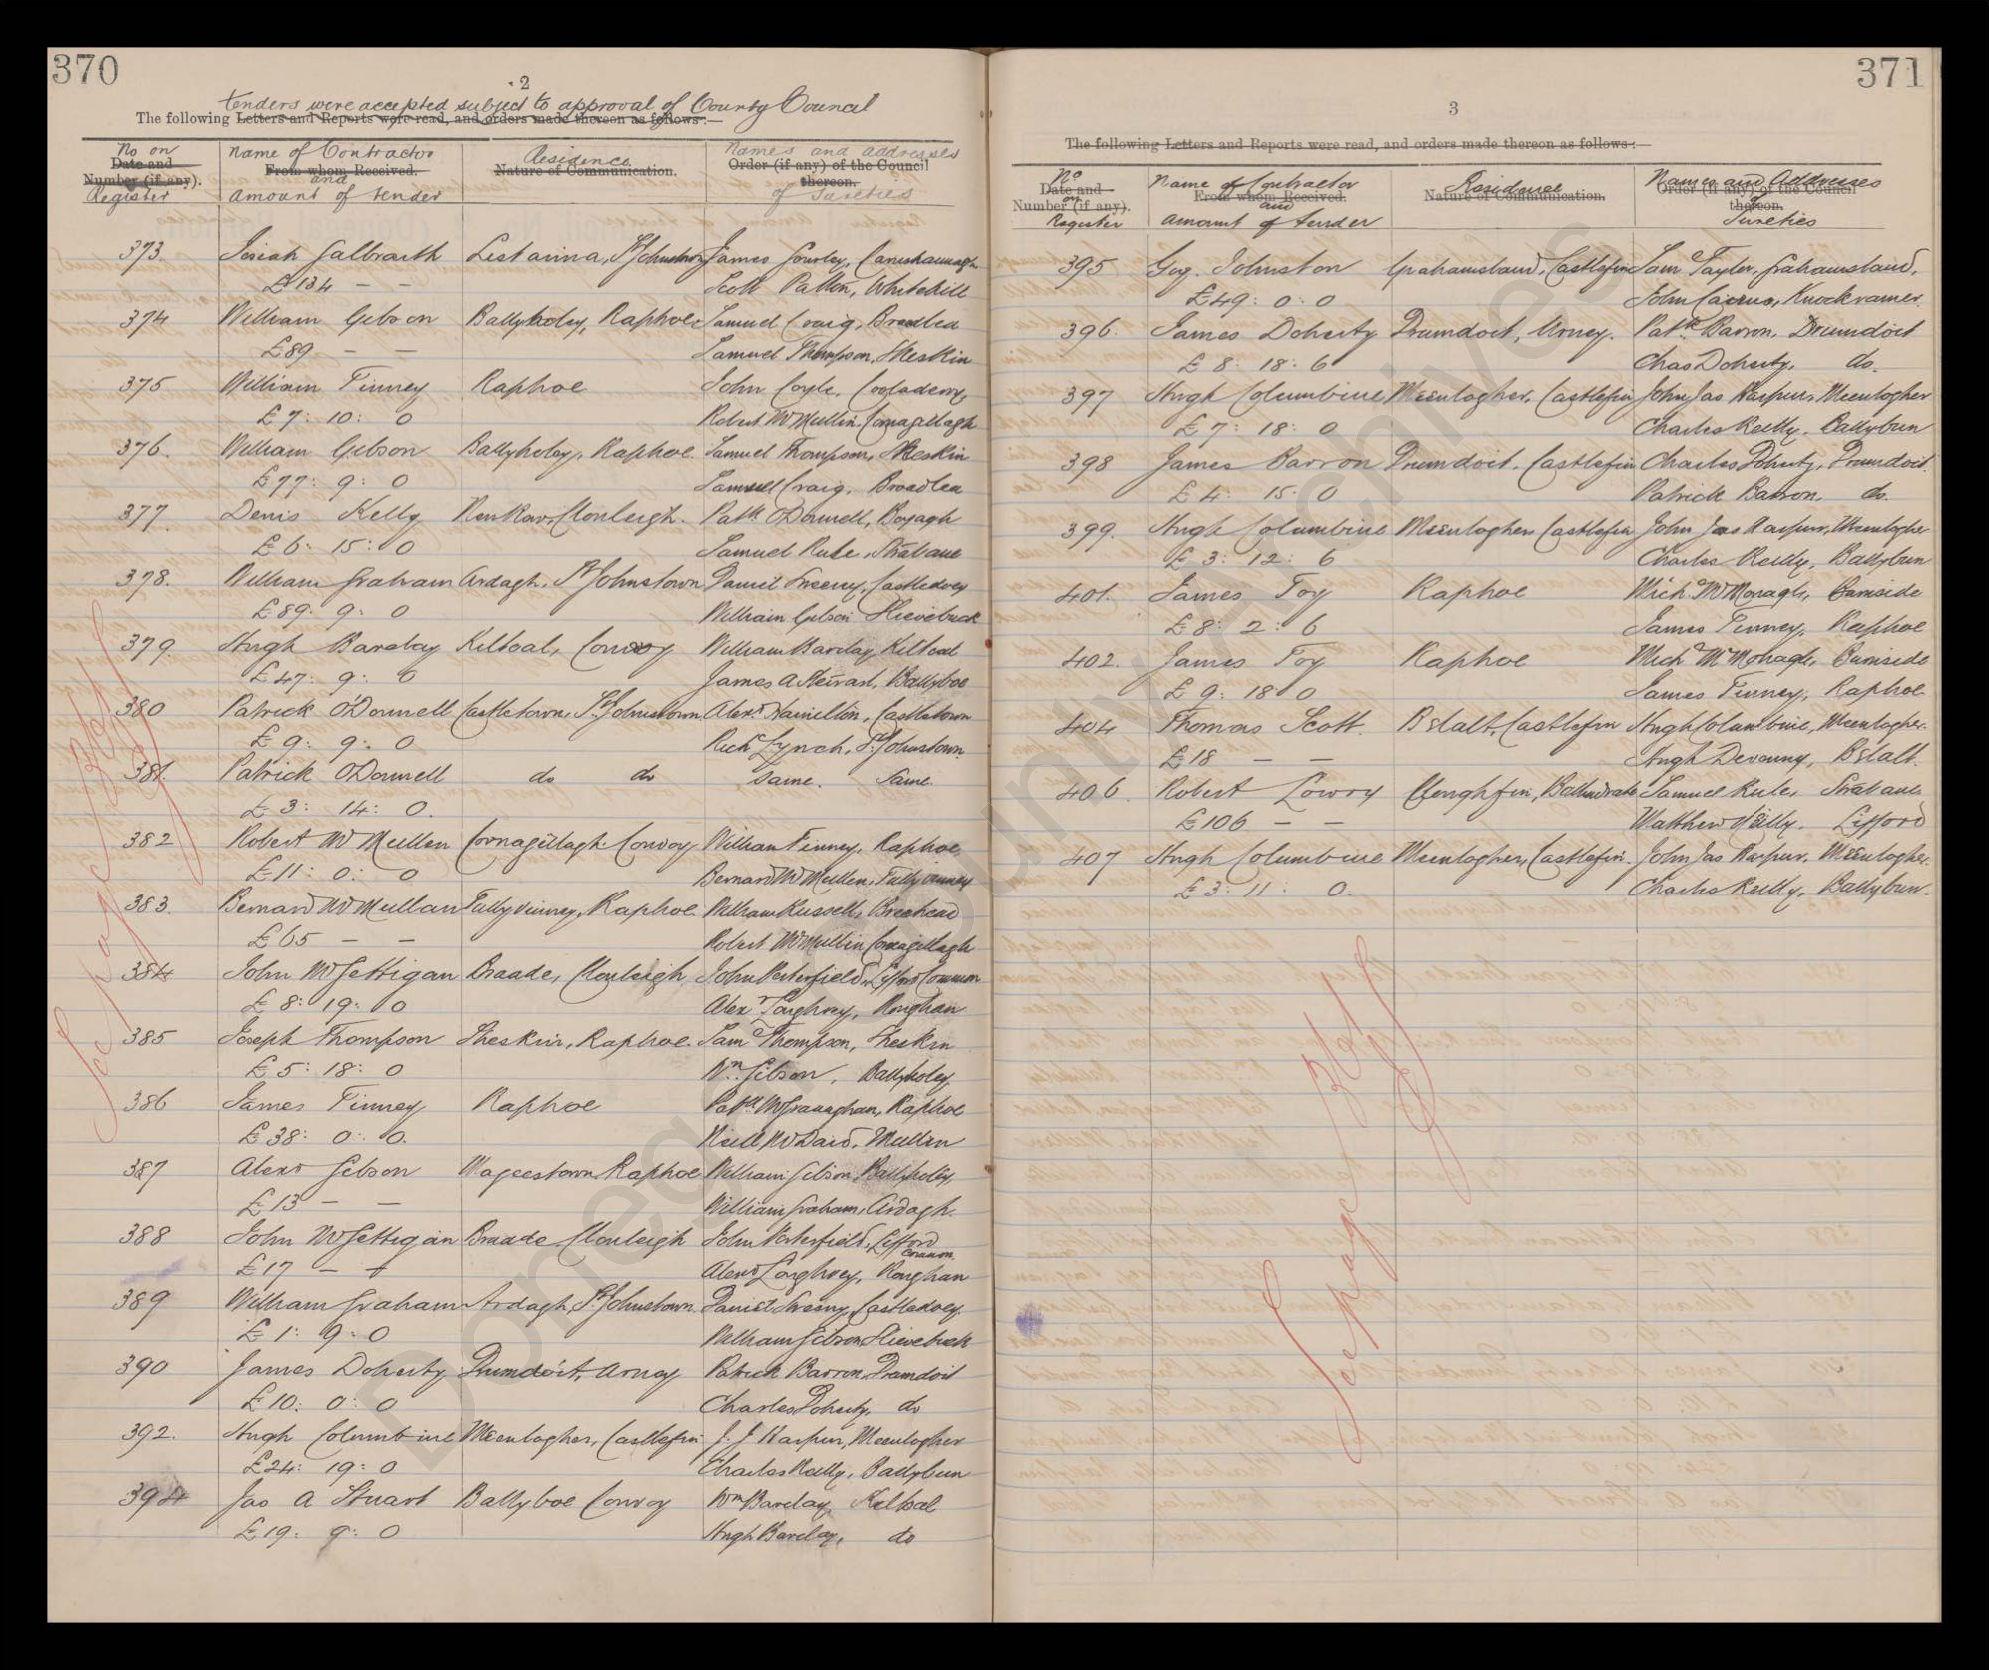 370
2
tenders were accepted subject to approval of County Council
The following Letters and Reports were read, and orders made thereon as follows:—
No on Name of Contractor Residence Names and addresses
Date and From whom Received. Nature of Communication. Order (if any) of the Council
Number (if any). and thereon.
Register amount of tender of Sureties
373. Josiah Galbraith St Johnstown James Gourley,
£134 — — Scott Patton, Whitehill
374 William Gibson Ballyholey, Raphoe Samuel Craig, Broadlea
£89 — — Samuel Thompson, Sheskin
375 William Tinney Raphoe John Coyle, Cooladerry
£7: 10: 0 Robert McMullin, Cornagillagh
376. William Gibson Ballyholey, Raphoe Samuel Thompson, Sheskin
£77: 9: 0 Samuel Craig, Broadlea
377 Denis Kelly Clonleigh. Patk O'Donnell, Boyagh
£6: 15: 0 Samuel Rule, Strabane
378. William Graham Ardagh, St Johnstown Daniel Sweeny, Castledoey
£89: 9: 0 William Gibson Slievebuck
379. Hugh Barclay Kiltoal, Convoy William Barclay, Kiltoal
£47: 9: 0 James A Stewart, Ballyboe
380 Patrick O'Donnell Castletown, St Johnstown Alexr Hamilton, Castletown
£9: 9: 0 Richd Lynch, St Johnstown
381. Patrick O'Donnell do do Same. Same.
£3: 14: 0.
382 Robert McMullen Cornagillagh Convoy William Tinney, Raphoe
£11: 0: 0 Bernard McMullen, Tullyvinney
383. Bernard McMullan Tullyvinney, Raphoe. William Russell, Breahead
£65 — — Robert McMullin Cornagillagh
384 John McGettigan Braade, Clonleigh John Porterfield, Lifford Common
£8: 19: 0 Alexr Loughrey, Roughan
385 Joseph Thompson Sheskin, Raphoe. Saml Thompson, Sheskin
£5: 18: 0 Wm Gibson, Ballyholey
386 James Tinney Raphoe Patk McGranaghan, Raphoe
£38: 0: 0. Niell McDaid, Mullan
387 Alexr Gibson Mageestown Raphoe William Gibson, Ballyholey
£13 — — William Graham, Ardagh.
388 John McGettigan Braade Clonleigh John Porterfield, Lifford Common
£17 — — Alexr Loughrey, Roughan
389 William Graham Ardagh, St Johnstown. Daniel Sweeny, Castledoey
£1: 9: 0 William Gibson, Slievebuck
390 James Doherty Drumdoit, Urney Patrick Barron, Drumdoit
£10: 0: 0 Charles Doherty, do
392. Hugh Columbine Meenlogher, Castlefin. J. J Harpur, Meenlogher
£24: 19: 0 Charles Reilly, Ballybun
394 Jas A Stuart Ballyboe Convoy Wm Barclay, Kiltoal
£19: 9: 0 Hugh Barclay, do
See page 361
371
3
The following Letters and Reports were read, and orders made thereon as follows:—
No Name of Contractor Residence Names and Addresses
Date and From whom Received. Nature of Communication. Order (if any) of the Council
Number (if any). on and of thereon.
Register amount of tender Sureties
395 Geo. Johnston Grahamsland, Castlefin Saml Taylor, Grahamsland,
£49: 0: 0 John Cairns, Knockramer
396. James Doherty Drumdoit, Urney. Patk Barron, Drumdoit
£8: 18: 6 Chas Doherty, do.
397 Hugh Columbine Meenlogher, Castlefin John Jas Harpur, Meenlogher
£7: 18: 0 Charles Reilly, Ballybun
398 James Barron Drumdoit, Castlefin Charles Doherty, Drumdoit
£4: 15: 0 Patrick Barron, do.
399. Hugh Columbine Meenlogher Castlefin John Jas Harpur, Meenlogher
£3: 12: 6 Charles Reilly, Ballybun
401. James Toy Raphoe Michl McMonagle, Burnside
£8: 2: 6 James Tinney, Raphoe
402. James Toy Raphoe Michl McMonagle, Burnside
£9: 18: 0 James Tinney, Raphoe
404 Thomas Scott Belalt, Castlefin Hugh Columbine, Meenlogher.
£18 — — Hugh Devanny, Belalt.
406. Robert Lowry Cloughfin, Ballindrate Samuel Rule, Strabane
£106 — — Matthew Reilly, Lifford
407 Hugh Columbine Meenlogher, Castlefin. John Jas Harpur, Meenlogher.
£3: 11: 0. Charles Reilly, Ballybun.
See page 361
Donegal County Archives